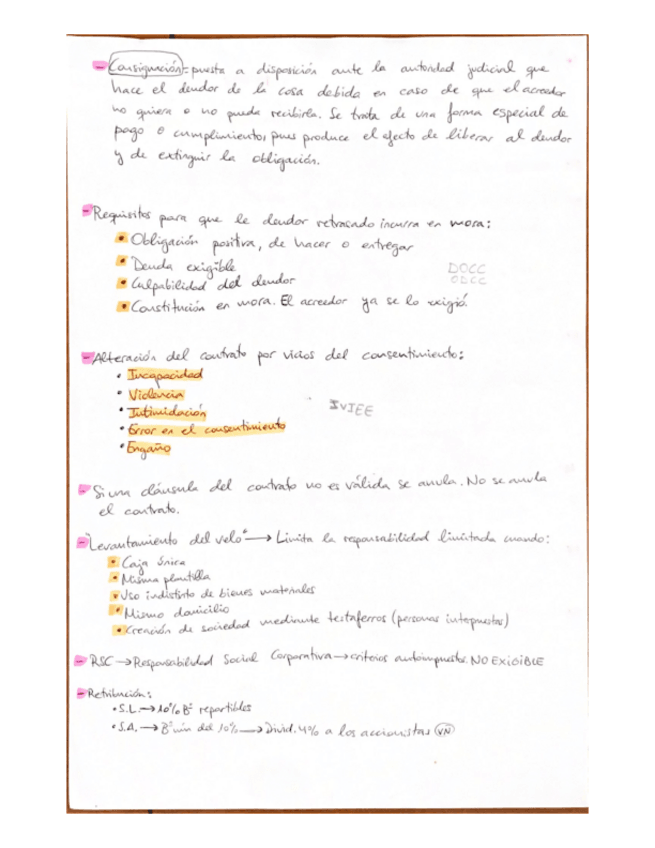 - Consignación = puesta a disposición ante la autoridad judicial que
hace el deudor de la cosa debida en caso de que el acreedor
no quiera o no pueda recibirla. Se trata de una forma especial de
pago o cumplimiento, pues produce el efecto de liberar al deudor
y de extinguir la obligación.
- Requisitos para que le deudor retrasado incurra en mora:
• Obligación positiva, de hacer o entregar
• Deuda exigible
DOCC
• Culpabilidad del deudor
ODCC
• Constitución en mora. El acreedor ya se lo exigió
- Alteración del contrato por vicios del consentimiento:
• Incapacidad
• Violencia
• Intimidación
IVIEE
• Error en el consentimiento
• Engaño
- Si una cláusula del contrato no es válida se anula. No se anula
el contrato.
- "Levantamiento del velo" → Limita la responsabilidad limitada cuando:
• Caja única
• Misma plantilla
• Uso indistinto de bienes materiales
• Mismo domicilio
• Creación de sociedad mediante testaferros (personas interpuestas)
- RSC → Responsabilidad Social Corporativa → criterios autoimpuestos. NO EXIGIBLE
- Retribución:
• S.L. → 10% Bº repartibles
• S.A. → Bº mín del 10% → Divid. 4% a los accionistas (VN)